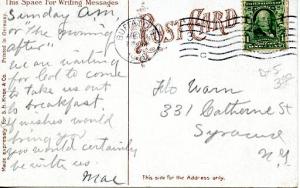 This Space For Writing Messages
POST CARD
Sunday am
or "The morning
after"
We are waiting
for Cod to come
to take us out
to breakfast.
If wishes would
bring you
you would certainly
be with us.
Mae
Flo Warn
331 Catherine St
Syracuse
N.Y.
This side for the Address only.
Made expressly for S. H. Kress & Co.
Printed in Germany.